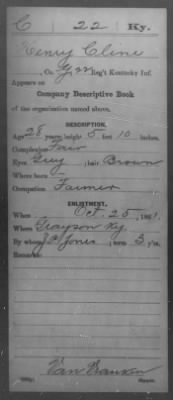 C 22 Ky.
Henry Cline
, Co. G, 22 Reg't Kentucky Inf.
Appears on
Company Descriptive Book
of the organization named above.
DESCRIPTION.
Age 28 years; height 5 feet 10 inches.
Complexion Fair
Eyes Grey ; hair Brown
Where born
Occupation Farmer
ENLISTMENT.
When Oct. 25 , 1861.
Where Grayson Ky
By whom J. W. Jones ; term 3 y'rs.
Remarks:
Copyist.